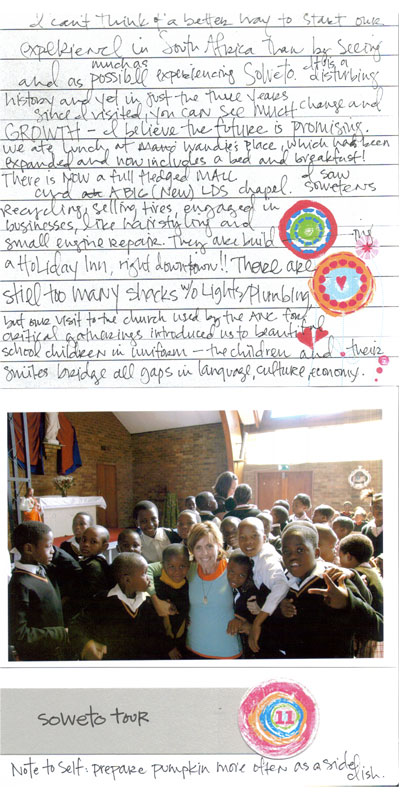 I can't think of a better way to start our
experience in South Africa than by seeing
and as much as possible experiencing Soweto. It is a disturbing
history and yet in just the three years
since I visited, you can see much change and
GROWTH - I believe the future is promising.
We ate lunch at Wandie's place, which has been
expanded and now includes a bed and breakfast!
There is NOW a full fledged MALL
and A BIG (New) LDS chapel. I saw Sowetens
Recycling, selling tires, engaged in
businesses, like hairstyling and
small engine repair. They are building
a Holiday Inn, right downtown!! There are
still too many shacks w/o Lights/Plumbing
but our visit to the church used by the ANC for
critical gatherings introduced us to beautiful
school children in uniform - the children and their
smiles bridge all gaps in language, culture, economy.
soweto tour
11
Note to Self: prepare pumpkin more often as a side dish.